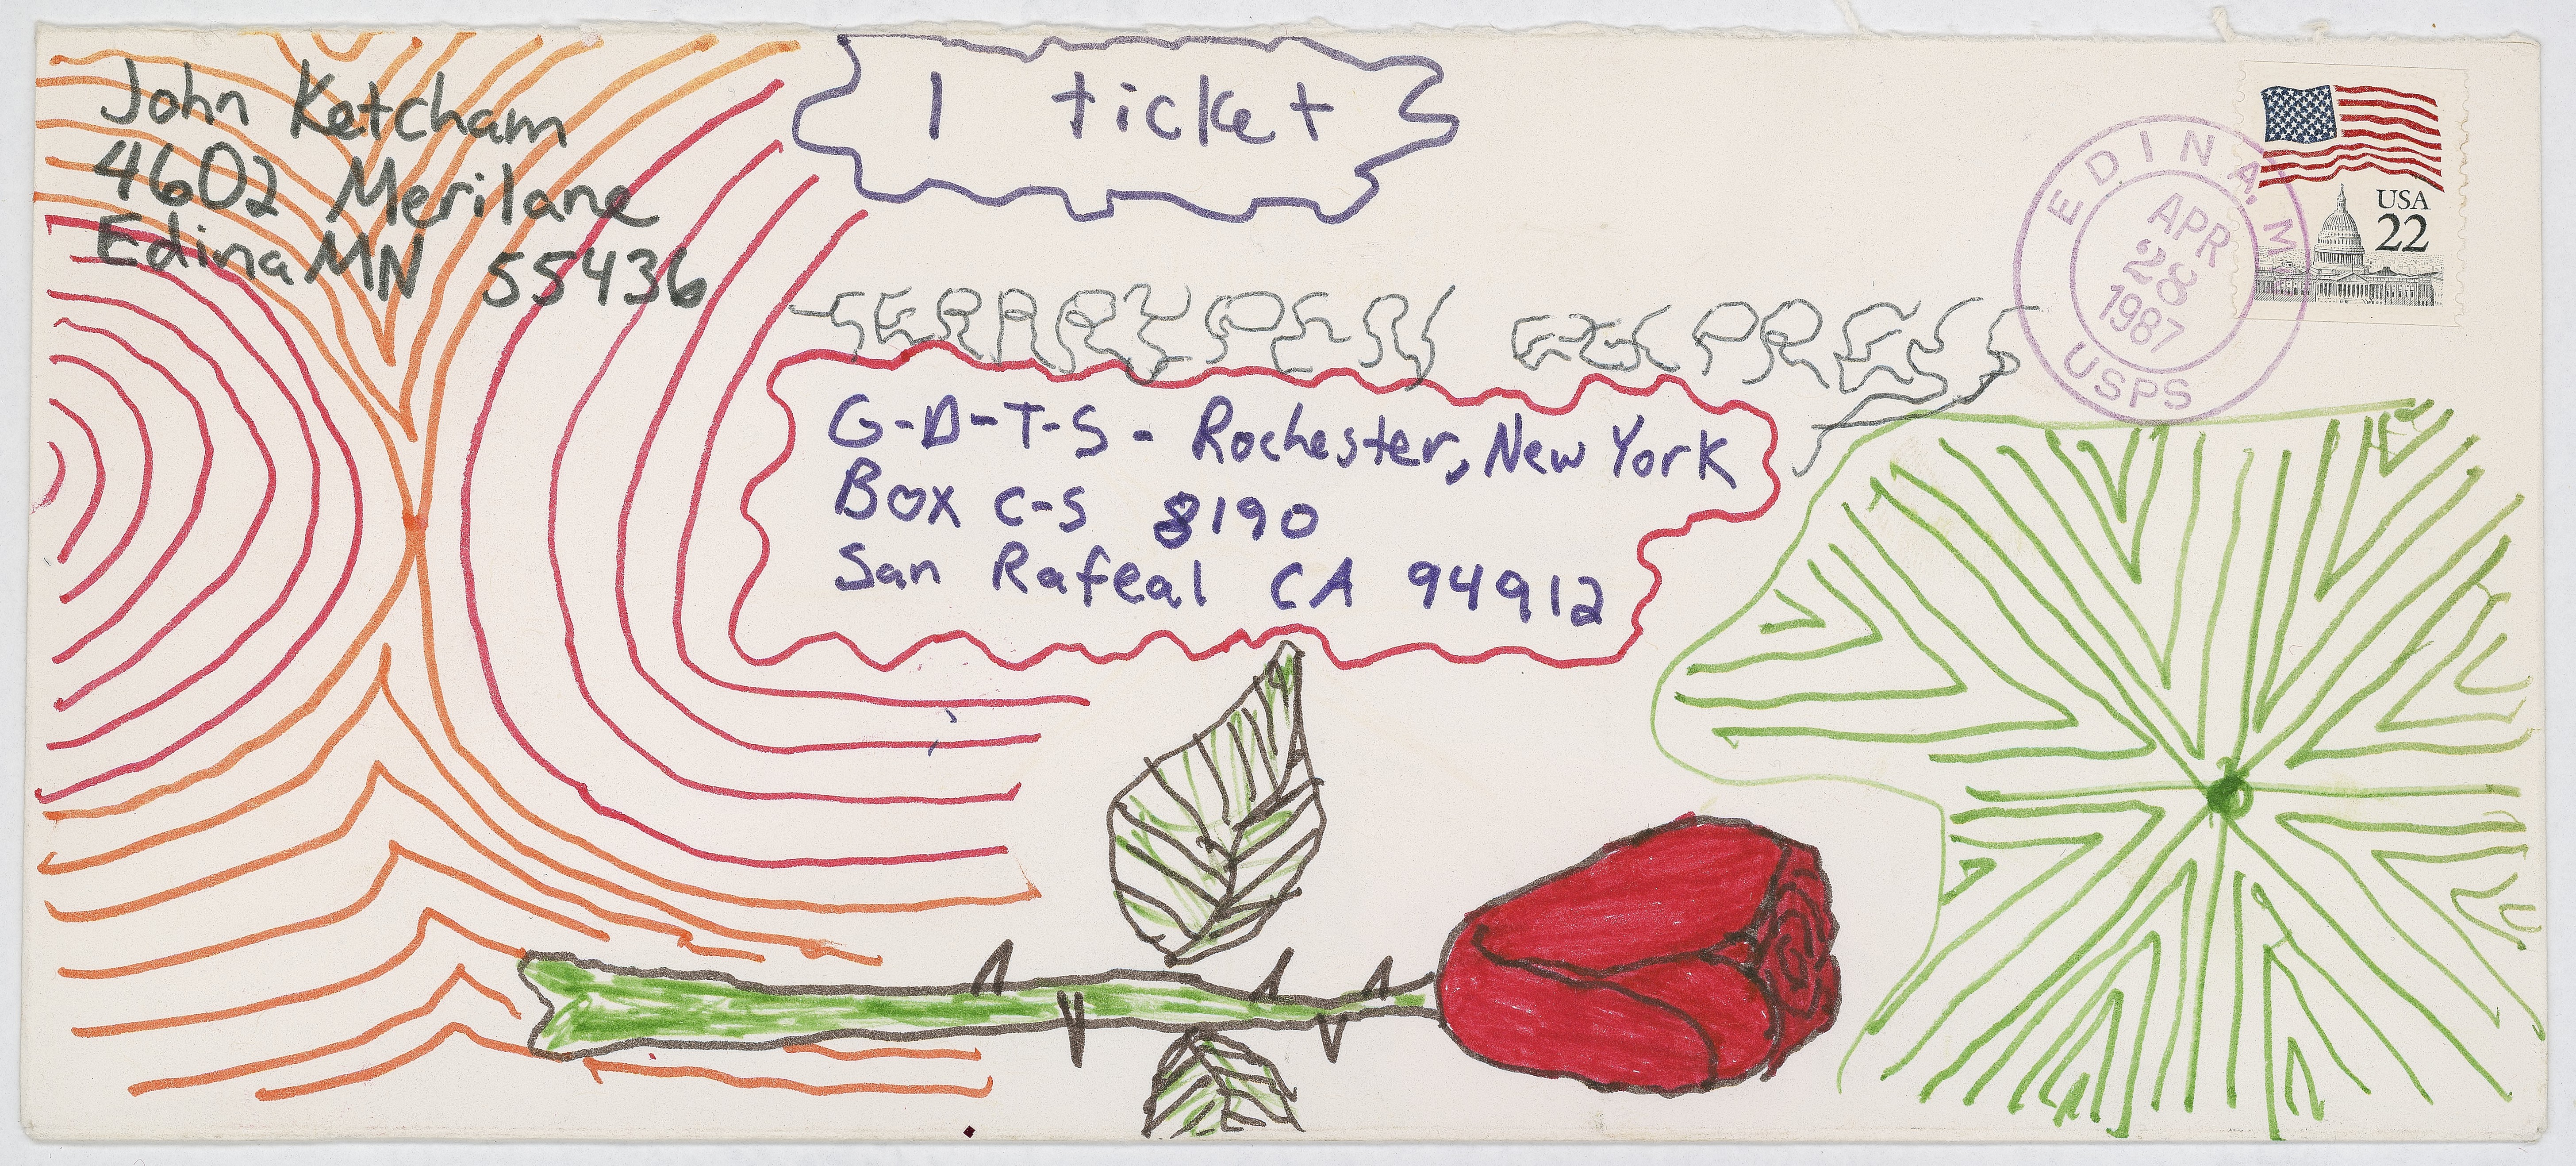 John Ketcham
4602 Merilane
Edina MN 55436
1 ticket
USA
22
EDINA, M
APR
28
1987
USPS
EXPRESS
G-D-T-S- Rochester, New York
Box C-S 8190
San Rafeal CA 94912